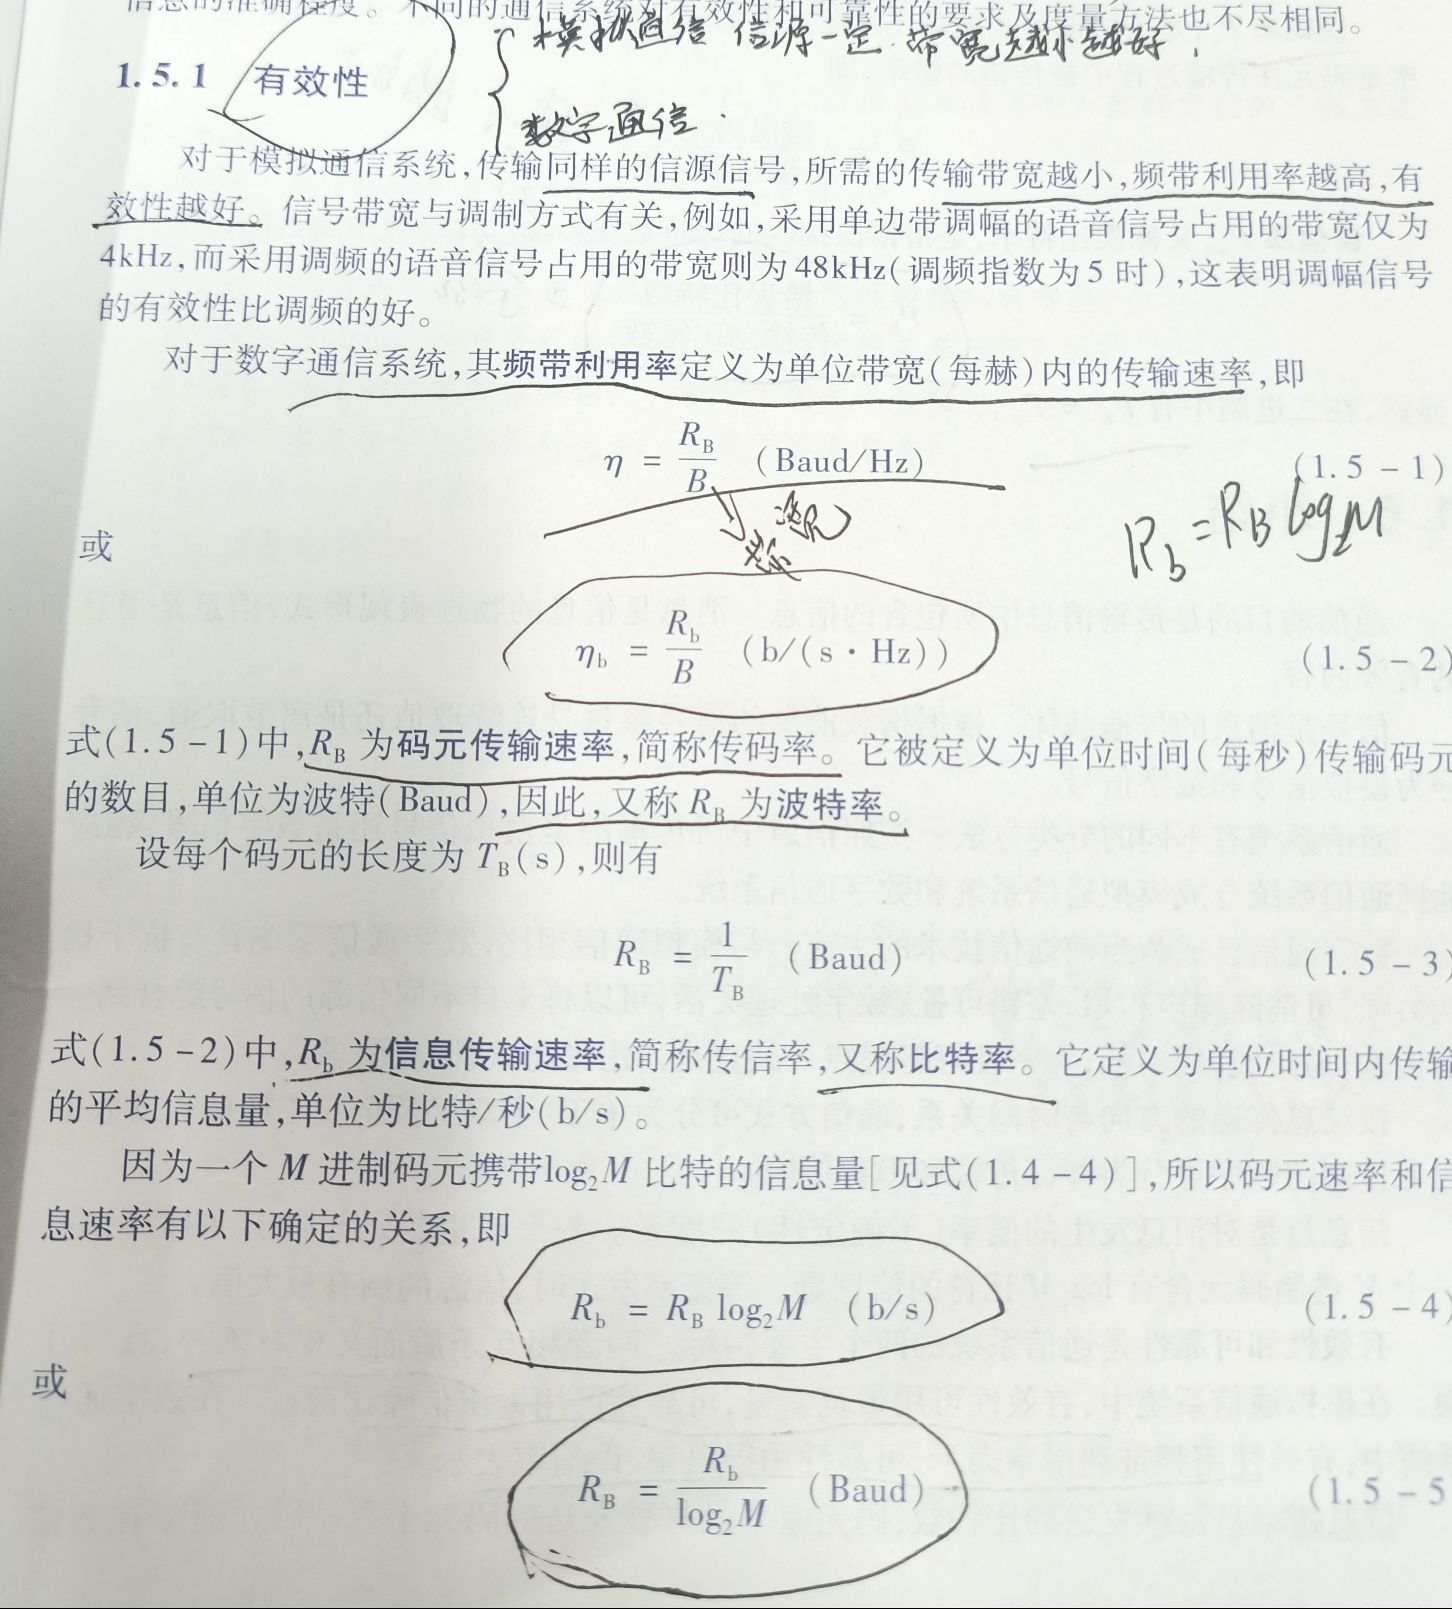 信息的准确程度。不同的通信系统对有效性和可靠性的要求及度量方法也不尽相同。
模拟通信 信源一定 带宽越小越好,
1.5.1 有效性
数字通信.
对于模拟通信系统,传输同样的信源信号,所需的传输带宽越小,频带利用率越高,有
效性越好。信号带宽与调制方式有关,例如,采用单边带调幅的语音信号占用的带宽仅为
4kHz,而采用调频的语音信号占用的带宽则为48kHz(调频指数为5时),这表明调幅信号
的有效性比调频的好。
对于数字通信系统,其频带利用率定义为单位带宽(每赫)内的传输速率,即
η = R_B/B (Baud/Hz) (1.5-1)
R_b = R_B log₂M
或
η_b = R_b/B (b/(s·Hz)) (1.5-2)
式(1.5-1)中,R_B 为码元传输速率,简称传码率。它被定义为单位时间(每秒)传输码元
的数目,单位为波特(Baud),因此,又称 R_B 为波特率。
设每个码元的长度为 T_B(s),则有
R_B = 1/T_B (Baud) (1.5-3)
式(1.5-2)中,R_b 为信息传输速率,简称传信率,又称比特率。它定义为单位时间内传输
的平均信息量,单位为比特/秒(b/s)。
因为一个 M 进制码元携带log₂M 比特的信息量[见式(1.4-4)],所以码元速率和信
息速率有以下确定的关系,即
R_b = R_B log₂M (b/s) (1.5-4)
或
R_B = R_b/log₂M (Baud) (1.5-5